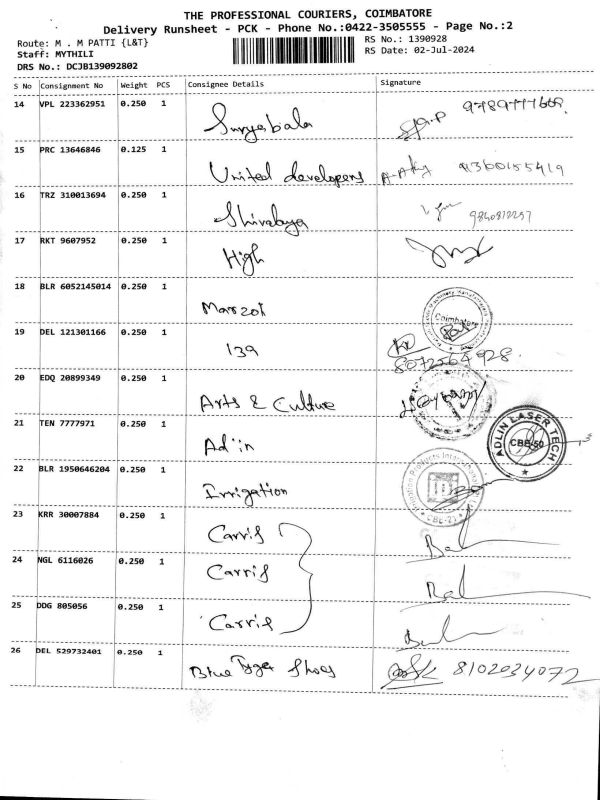 THE PROFESSIONAL COURIERS, COIMBATORE
Delivery Runsheet - PCK - Phone No.:0422-3505555 - Page No.:2
Route: M . M PATTI {L&T}
RS No.: 1390928
Staff: MYTHILI
RS Date: 02-Jul-2024
DRS No.: DCJB139092802
S No Consignment No Weight PCS Consignee Details Signature
14 VPL 223362951 0.250 1 Suryabala
15 PRC 13646846 0.125 1 United developers
16 TRZ 310013694 0.250 1 Shivalaya
17 RKT 9607952 0.250 1 High
18 BLR 6052145014 0.250 1 Marzot Coimbatore
19 DEL 121301166 0.250 1 139 8072564928
20 EDQ 20899349 0.250 1 Arts & Culture
21 TEN 7777971 0.250 1 Adlin ADLIN LASER TECH CBE-50
22 BLR 1950646204 0.250 1 Irrigation
23 KRR 30007884 0.250 1
24 NGL 6116026 0.250 1
25 DDG 805056 0.250 1
26 DEL 529732401 0.250 1 Blue Tyger Shoes 8102034072